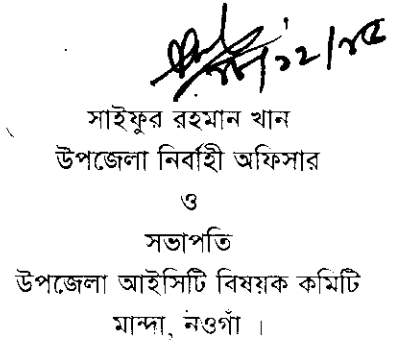 সাইফুর রহমান খান
উপজেলা নির্বাহী অফিসার
ও
সভাপতি
উপজেলা আইসিটি বিষয়ক কমিটি
মান্দা, নওগাঁ ।